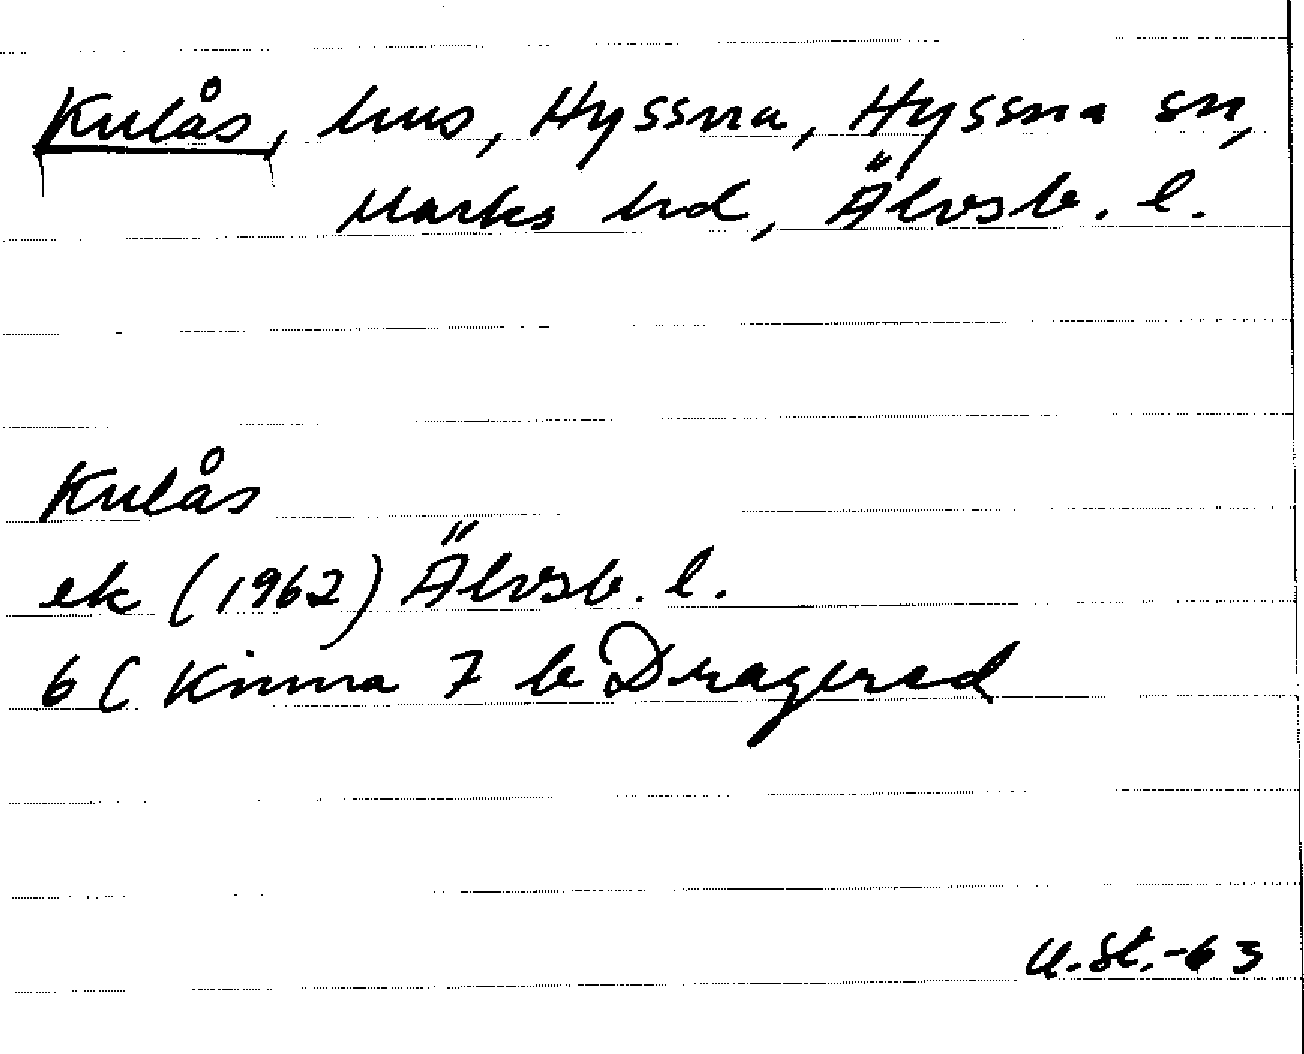 Kulås, hus, Hyssna, Hyssna sn,
Marks hd, Älvsb. l.
Kulås
ek (1962) Älvsb. l.
6C Kinna 7 b Dragered
U.St.-63